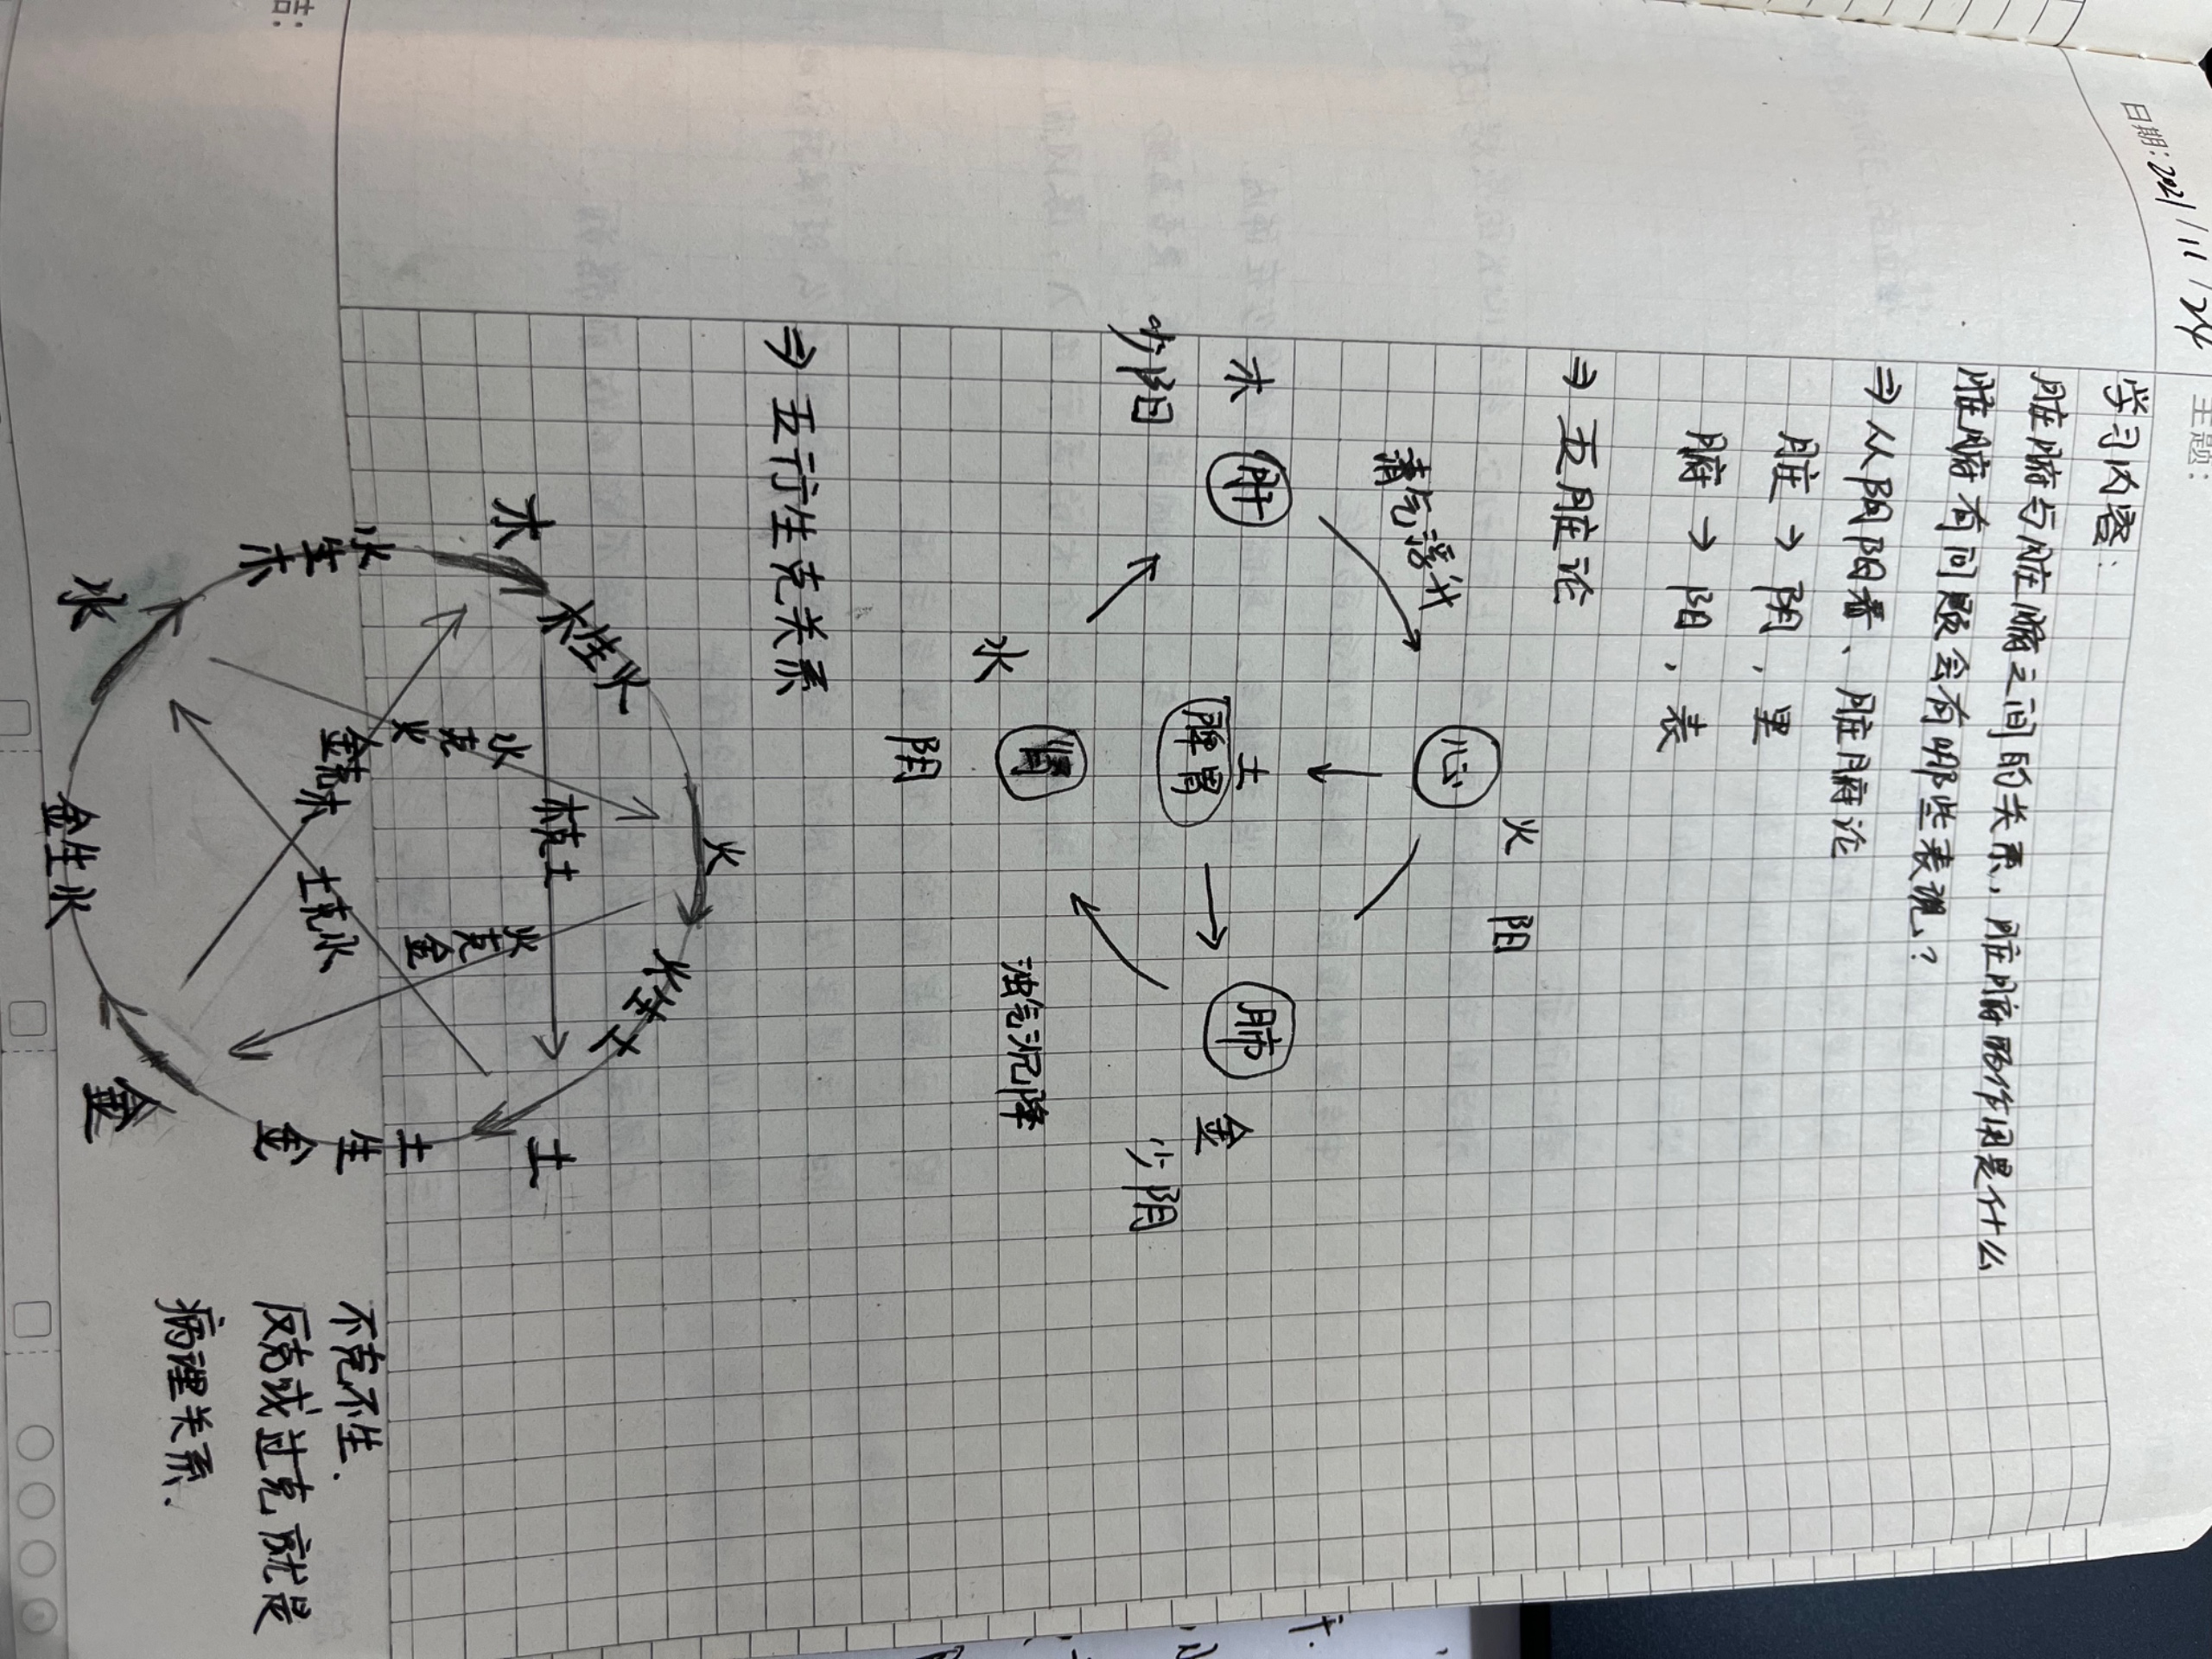 日期:2021/11/24
主题:
学习内容:
脏腑与脏腑之间的关系,脏腑的作用是什么
脏腑有问题会有哪些表现?
⇒从阴阳看、脏腑论
脏→阴,里
腑→阳,表
⇒五脏论
火 阳
心
清气浮升
木 肝
少阳
土
脾胃
肺 金
少阴
水
肾
浊气沉降
阴
⇒五行生克关系
火
木生火
火生土
木
土
水克火
木克土
火克金
水生木
土生金
金克木
土克水
水
金
金生水
不克不生.
反克或过克就是
病理关系.